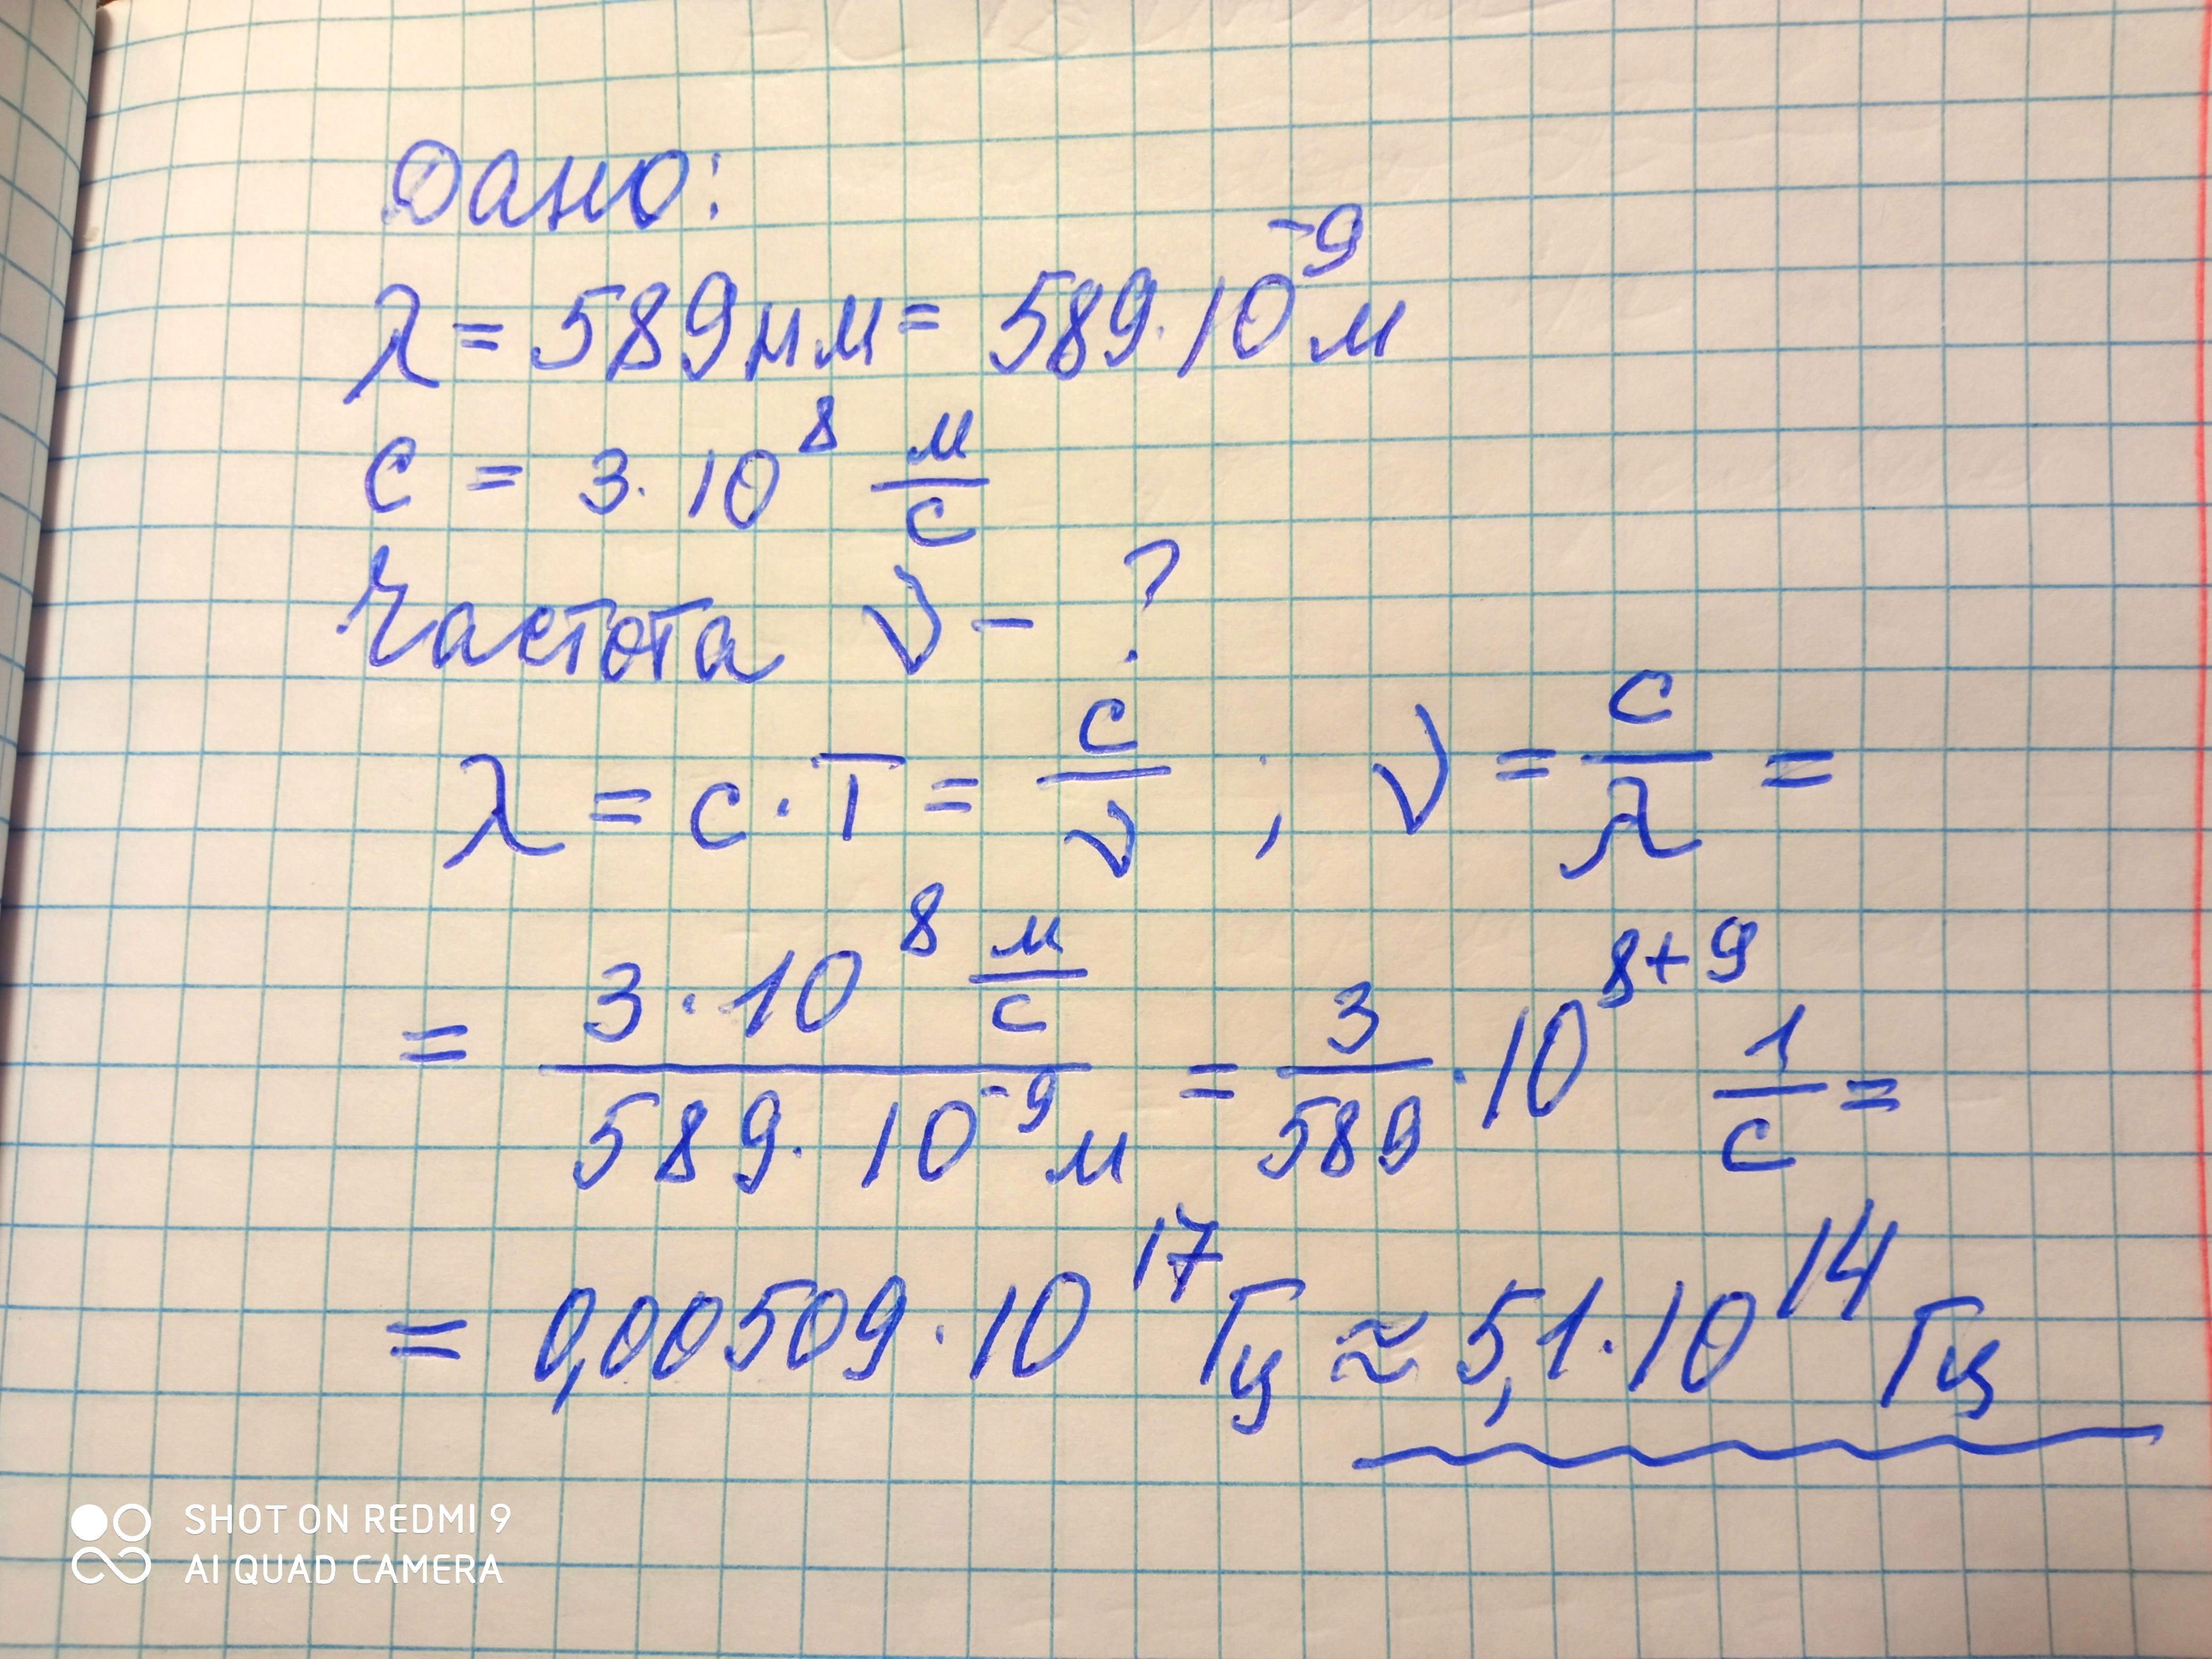 Дано:
λ = 589 нм = 589·10⁻⁹ м
c = 3·10⁸ м/с
Частота ν - ?
λ = c·T = c/ν ; ν = c/λ =
= 3·10⁸ м/с / 589·10⁻⁹ м = 3/589 ·10⁸⁺⁹ 1/с =
= 0,00509·10¹⁷ Гц ≈ 5,1·10¹⁴ Гц
SHOT ON REDMI 9
AI QUAD CAMERA